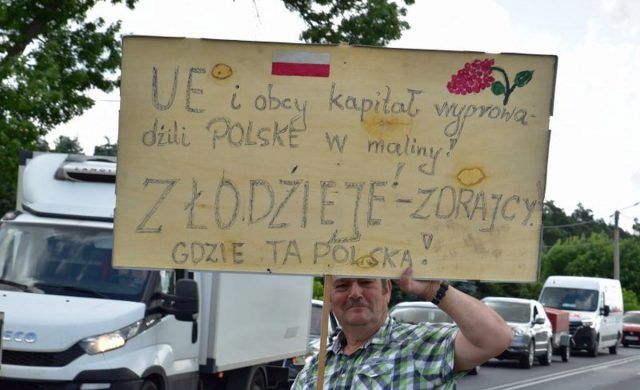 UE i obcy kapitał wyprowa-
dzili POLSKĘ w maliny!
ZŁODZIEJE! - ZDRAJCY!
GDZIE TA POLSKA!
IVECO